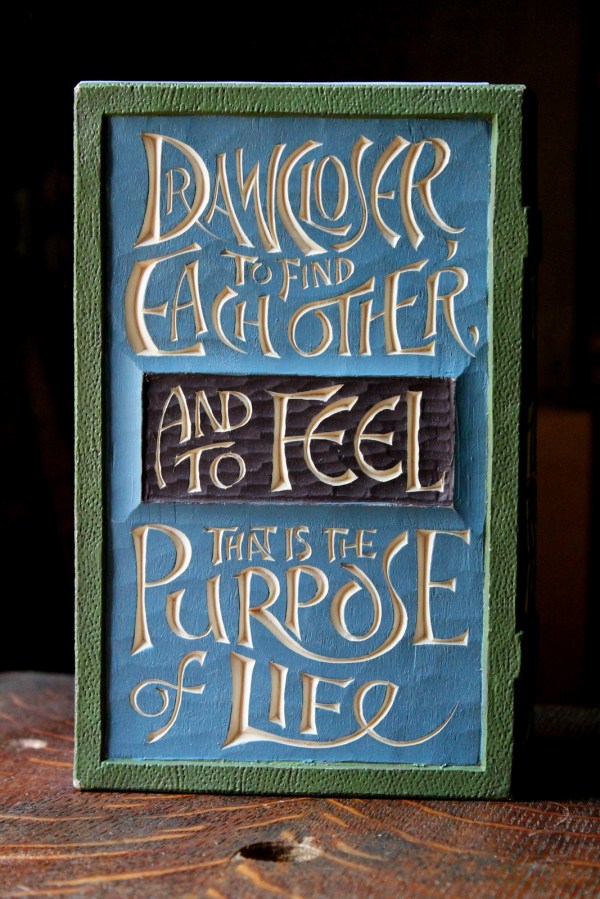 DRAW CLOSER,
TO FIND
EACH OTHER,
AND
TO FEEL
THAT IS THE
PURPOSE
of LIFe